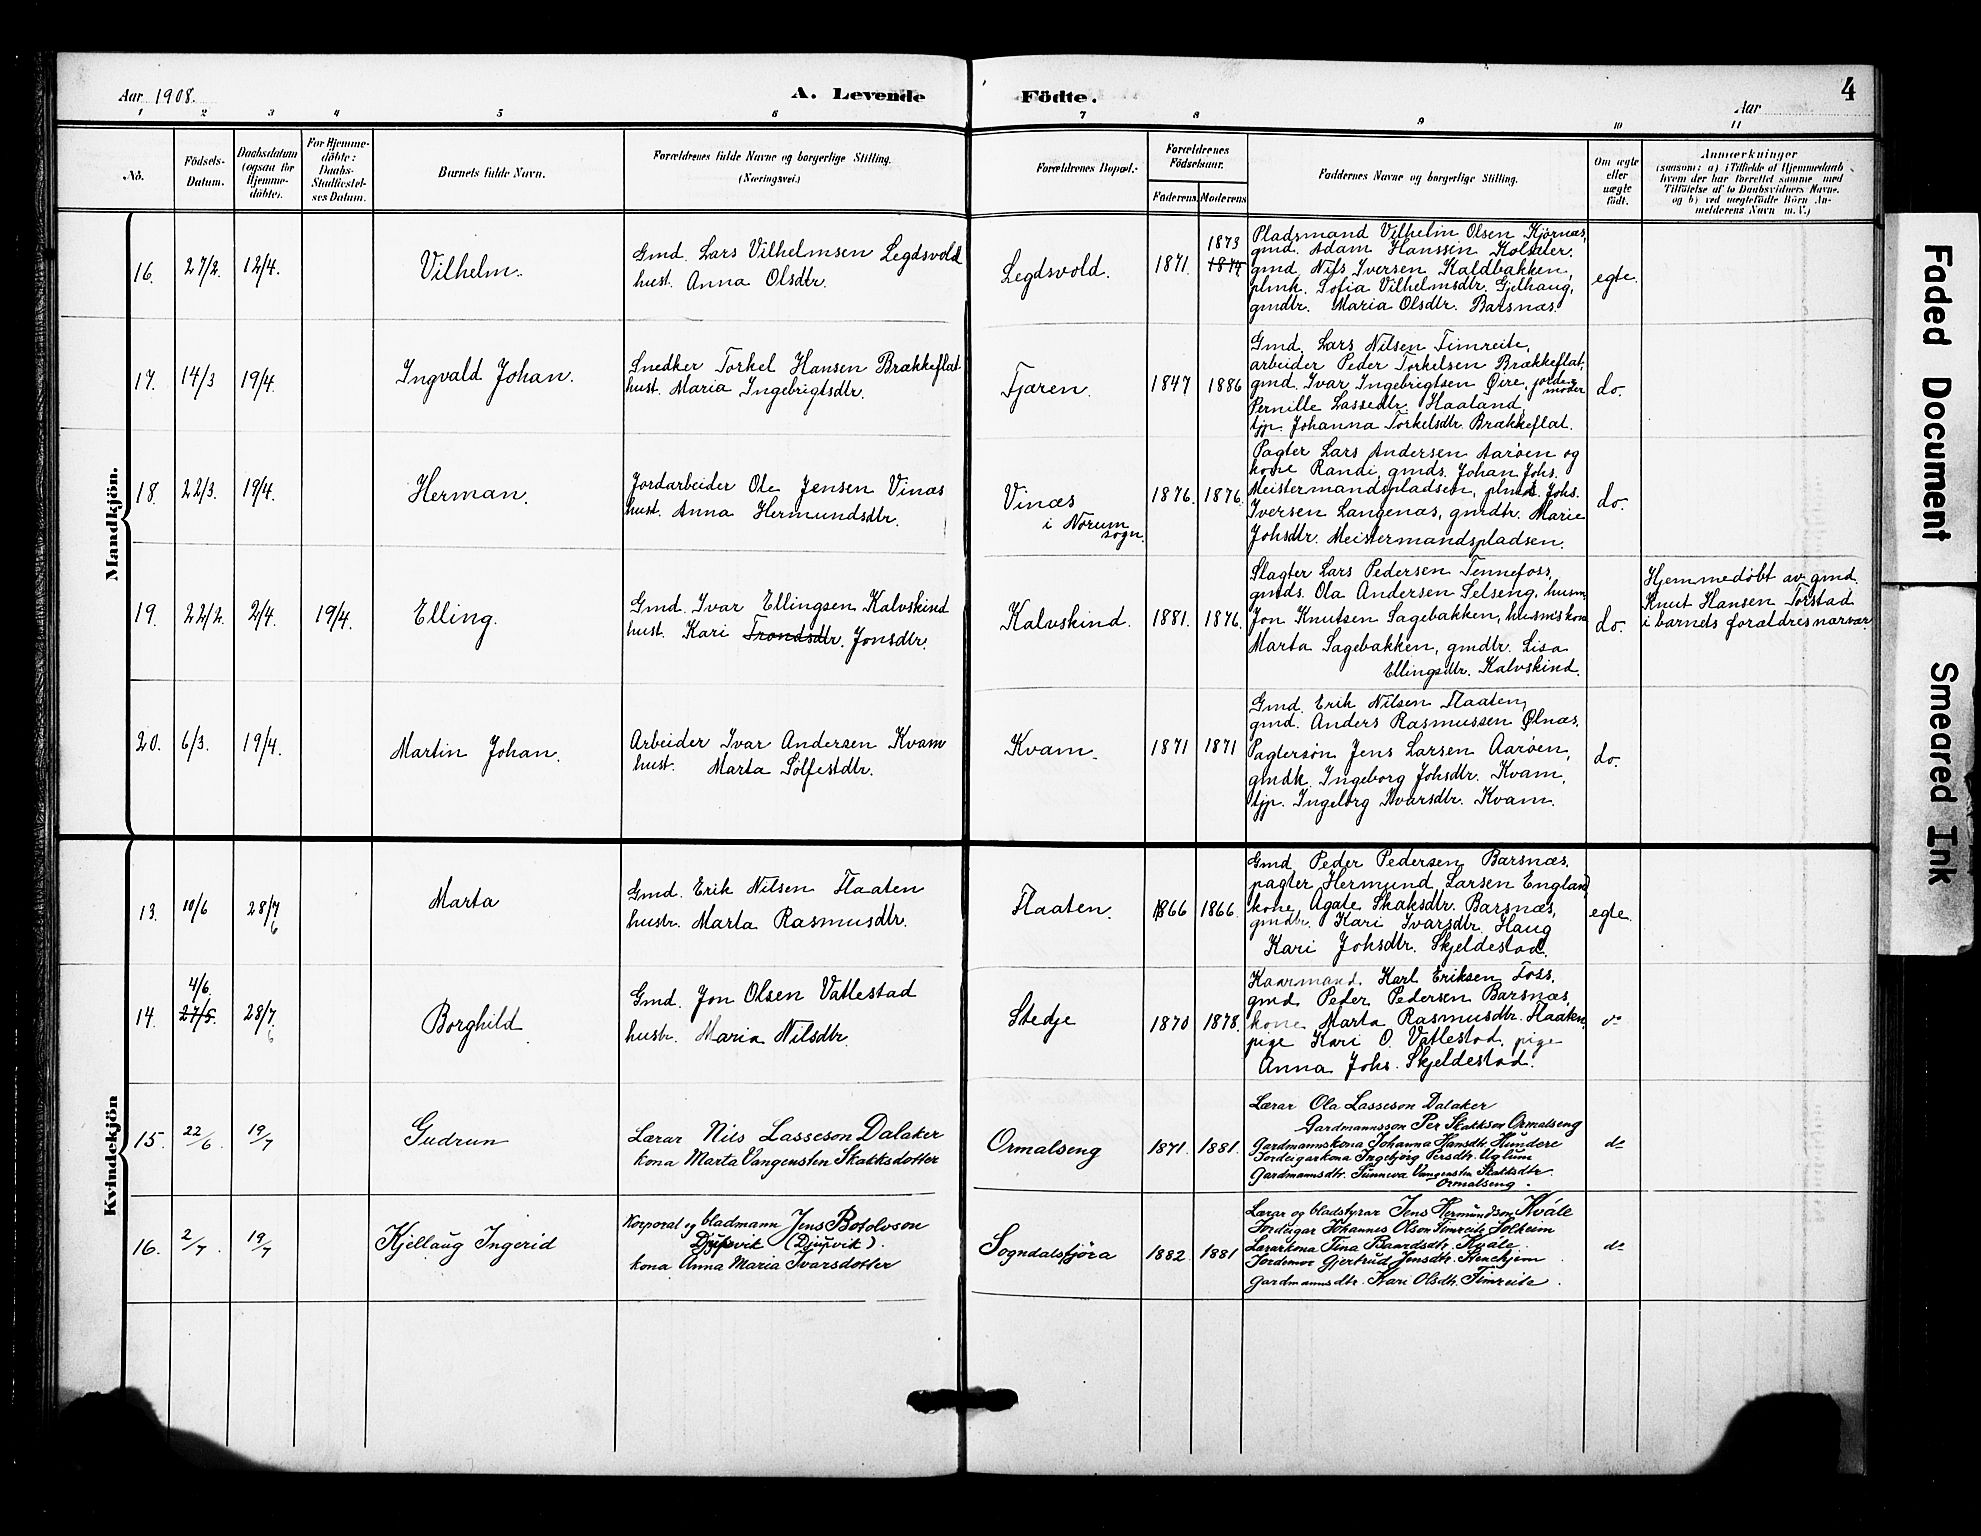 Aar 1908.
A. Levende Födte.
4
Aar
1 2 3 4 5 6 7 8 9 10 11
No.
Födsels-
Datum.
Daabsdatum
(ogsaa for
Hjemme-
döbte).
For Hjemme-
döbte:
Daabs-
Stadfæstel-
ses Datum.
Barnets fulde Navn.
Forældrenes fulde Navne og borgerlige Stilling.
(Næringsvei.)
Forældrenes Bopæl.
Forældrenes
Födselsaar.
Faderens. Moderens.
Faddernes Navne og borgerlige Stilling.
Om ægte
eller
uægte
födt.
Anmærkninger
(saasom: a) i Tilfælde af Hjemmedaab
hvem der har forrettet samme med
Tilföielse af to Daabsvidners Navne.
og b) ved uægtefödte Börn An-
melderens Navn m. V.)
Mandkjön.
16. 27/2. 12/4.
Vilhelm.
Gmd. Lars Vilhelmsen Legdsvold
hust. Anna Olsdtr.
Legdsvold.
1871.
1873
1874
Pladsmand Vilhelm Olsen Kjørnæs,
gmd. Adam Hanssen Kolsæter.
gmd Nils Iversen Kaldbakken,
plmk. Sofia Vilhelmsdtr. Gjelhaug,
gmdtr. Maria Olsdtr. Barsnæs.
egte.
17. 14/3 19/4.
Ingvald Johan.
Snedker Torkel Hansen Brækkeflat
hust. Maria Ingebrigtsdtr.
Fjæren.
1847 1886
Gmd. Lars Nilsen Timreite,
arbeider Peder Torkelsen Brækkeflat,
gmd. Ivar Ingebrigtsen Øire, jorde-
moder
Pernille Lassedtr. Haaland,
tjp. Johanna Torkelsdtr. Brækkeflat.
do.
18. 22/3. 19/4.
Herman.
Jordarbeider Ole Jensen Vinæs
hust. Anna Hermundsdtr.
Vinæs
i Norum
sogn.
1876. 1876.
Pagter Lars Andersen Aarøen og
kone Randi, gmds. Johan Johs.
Meistermandspladsen, plmds. Johs.
Iversen Langenæs, gmdtr. Marie
Johsdtr. Meistermandspladsen.
do.
19. 22/2. 2/4. 19/4.
Elling.
Gmd. Ivar Ellingsen Kalvskind
hust. Kari Trondsdtr. Jonsdtr.
Kalvskind.
1881. 1876.
Slagter Lars Pedersen Tennefoss,
gmds. Ola Andersen Selseng, husm.
Jon Knutsen Sagebakken, husm's kone
Marta Sagebakken, gmdtr. Lisa
Ellingsdtr. Kalvskind.
do.
Hjemmedøbt av gmd.
Knut Hansen Torstad
i barnets forældres nærvær.
20. 6/3. 19/4.
Martin Johan.
Arbeider Ivar Andersen Kvam
hust. Marta Sølfestdtr.
Kvam.
1871 1871
Gmd. Erik Nilsen Flaaten,
gmd. Anders Rasmussen Ølnæs.
Pagtersøn Jens Larsen Aarøen,
gmdk. Ingeborg Johsdtr. Kvam,
tjp. Ingeborg Ivarsdtr. Kvam.
do.
Kvindekjön
13. 10/6 28/7 6
Marta
Gmd. Erik Nilsen Flaaten
hustr. Marta Rasmusdtr.
Flaaten.
1866 1866.
Gmd Peder Pedersen Barsnæs.
pagter Hermund Larsen England,
kone Agate Skaksdtr. Barsnæs,
gmdtr. Kari Ivarsdtr. Haug
Kari Johsdtr. Skjeldestad.
egte.
14.
4/6.
27/5. 28/7. 6
Borghild
Gmd. Jon Olsen Vatlestad
hustr. Maria Nilsdtr.
Stedje
1870 1878.
Kaarmand. Karl Eriksen Foss.
gmd. Peder Pedersen Barsnæs,
kone Marta Rasmusdtr. Flaaten,
pige Kari O. Vatlestad, pige
Anna Johs. Skjeldestad.
do
15. 22/6. 19/7
Gudrun
Lærar Nils Lasseson Dalaker
kona Marta Vangensten Skaksdotter
Ormalseng
1871. 1881.
Lærar Ola Lasseson Dalaker
Gardmannsson Per Skakson Ormalseng
Gardmannskona Johanna Hansdtr. Hundere
Jordeigarkona Ingebjörg Persdtr. Uglum
Gardmannsdtr. Sunneva Vangensten Skaksdtr.
Ormalseng.
do
16. 2/7. 19/7
Kjellaug Ingerid
Korporal og bladmann Jens Botolvson
Djupsvik (Djupvik).
kona Anna Maria Ivarsdotter
Sogndalsfjöra
1882 1881
Lærar og bladstyrar Jens Hermundson Kvåle
Jordeigar Johannes Olson Timreite Solheim
Lærarkona Tina Baardsdtr. Kvåle
Jordemor Gjertrud Jensdtr. Stenehjem
Gardmannsdtr. Kari Olsdtr. Timreite.
do
Faded Document
Smeared Ink